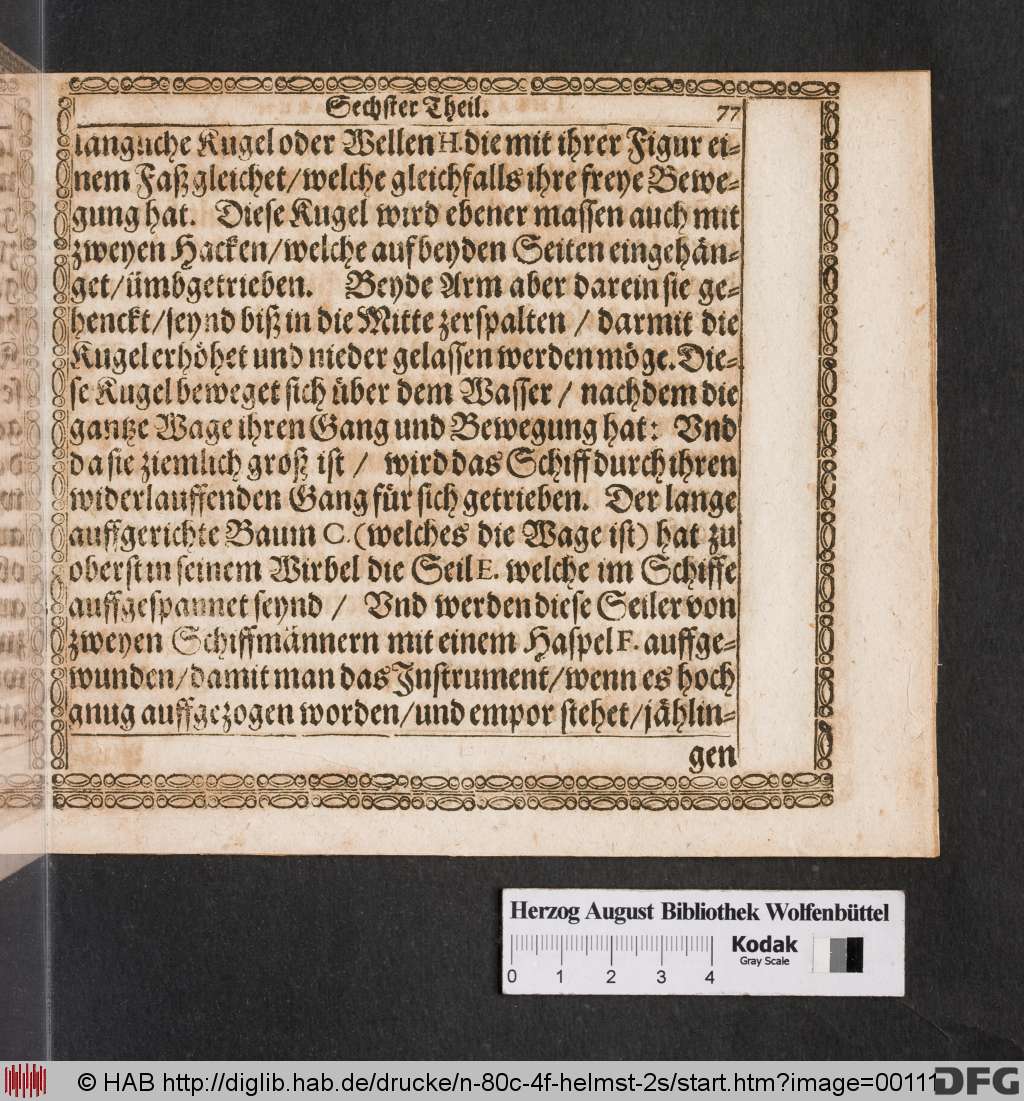 Sechster Theil. 77
langliche Kugel oder Wellen H. die mit ihrer Figur ei-
nem Faß gleichet/ welche gleichfalls ihre freye Bewe-
gung hat. Diese Kugel wird ebener massen auch mit
zweyen Hacken/ welche auf beyden Seiten eingehän-
get/ ümbgetrieben. Beyde Arm aber darein sie ge-
henckt/ seynd biß in die Mitte zerspalten / darmit die
Kugel erhöhet und nieder gelassen werden möge. Die-
se Kugel beweget sich über dem Wasser / nachdem die
gantze Wage ihren Gang und Bewegung hat: Vnd
da sie ziemlich groß ist / wird das Schiff durch ihren
widerlauffenden Gang für sich getrieben. Der lange
auffgerichte Baum C. (welches die Wage ist) hat zu
oberst in seinem Wirbel die Seil E. welche im Schiffe
auffgespannet seynd / Vnd werden diese Seiler von
zweyen Schiffmännern mit einem Haspel F. auffge-
wunden/ damit man das Instrument/ wenn es hoch
gnug auffgezogen worden/ und empor stehet/ jählin-
gen
Herzog August Bibliothek Wolfenbüttel
Kodak
Gray Scale
0 1 2 3 4
© HAB http://diglib.hab.de/drucke/n-80c-4f-helmst-2s/start.htm?image=00111
DFG